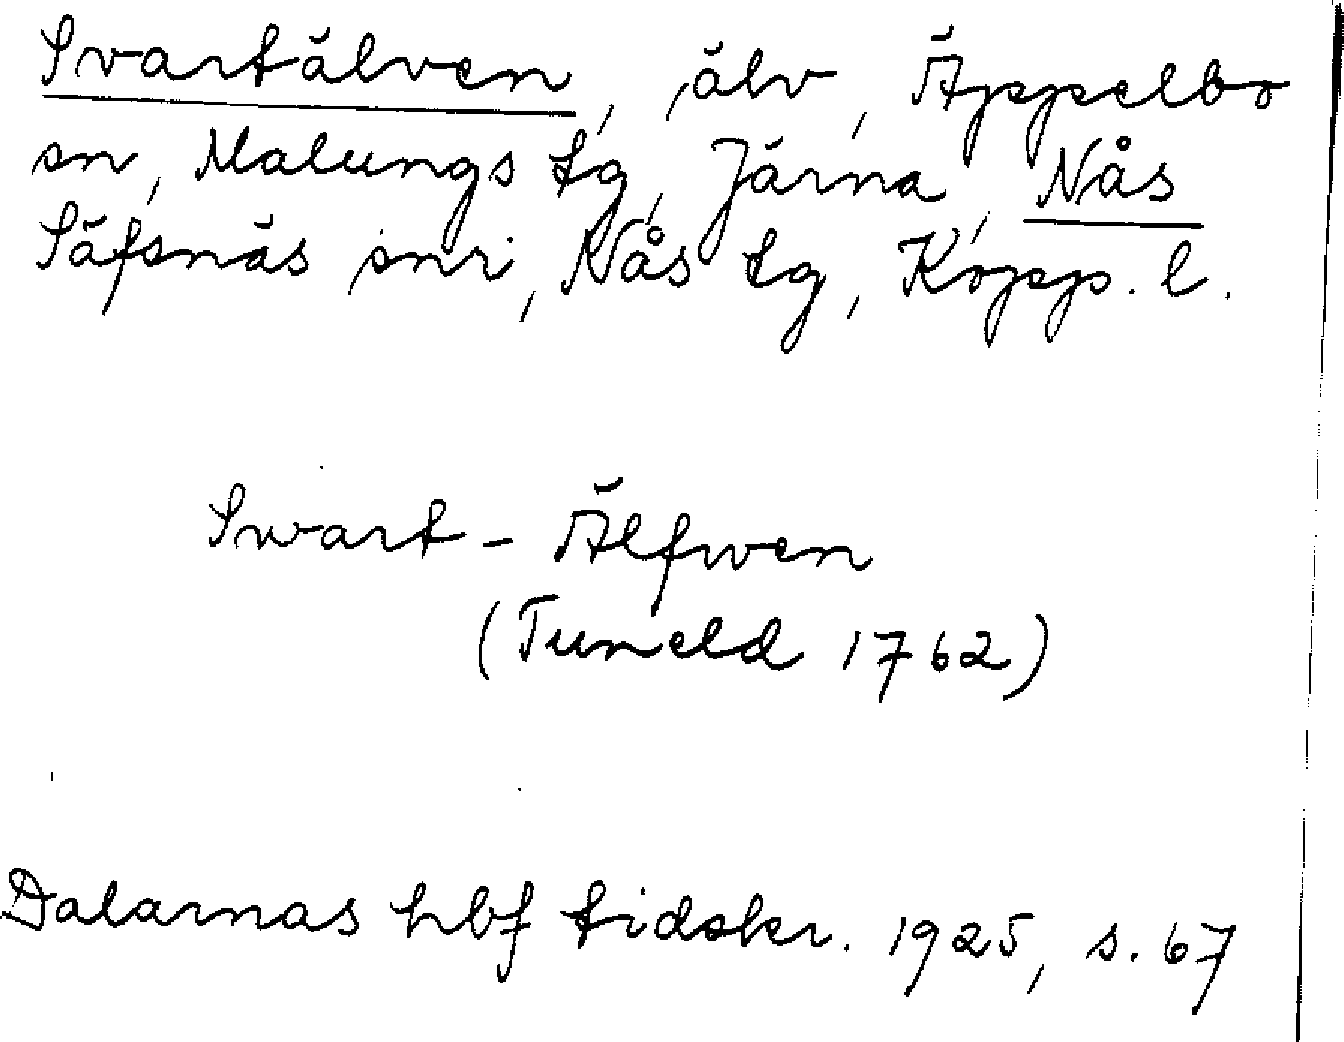 Svartälven, älv, Äppelbo
sn, Malungs tg, Järna, Nås
Säfsnäs snr, Nås tg, Kopp. l.
Swart-Älfwen
(Tuneld 1762)
Dalarnas hbf tidskr. 1925, s. 67